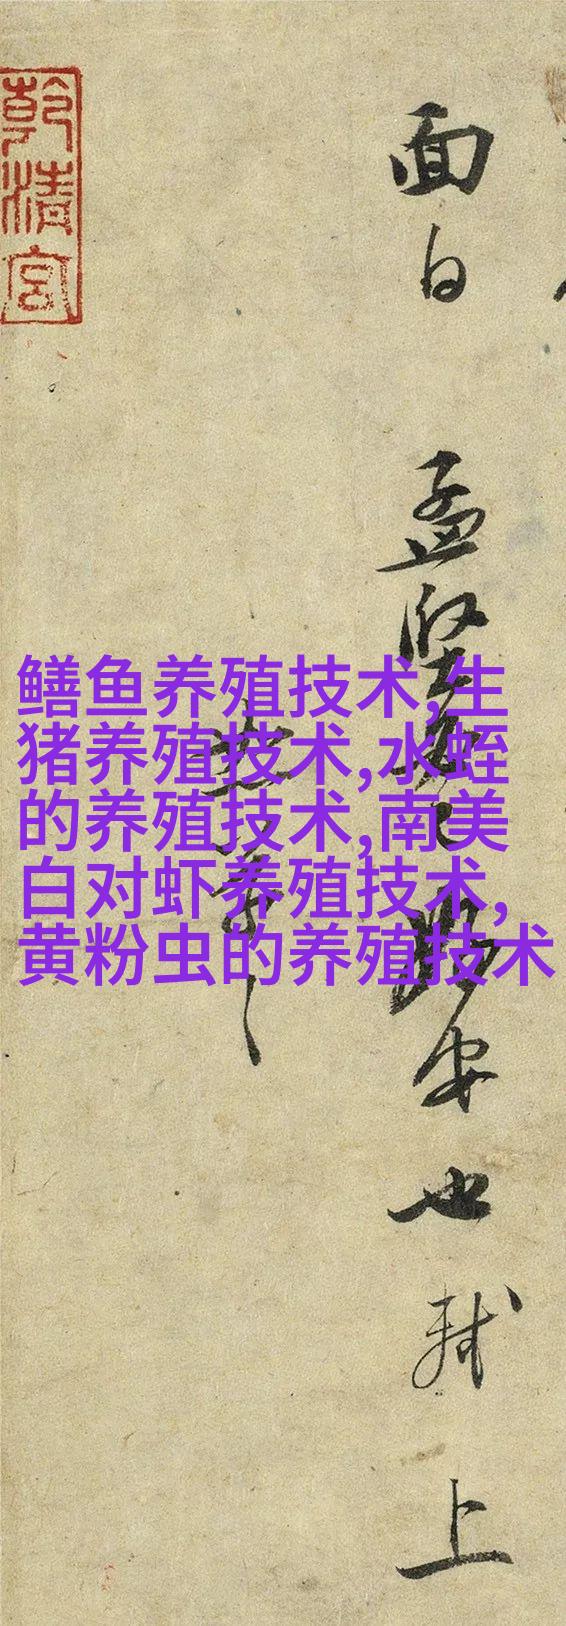 乾清宫
面白
孟坚
安也轼
上
鳝鱼养殖技术,生
猪养殖技术,水蛭
的养殖技术,南美
白对虾养殖技术,
黄粉虫的养殖技术